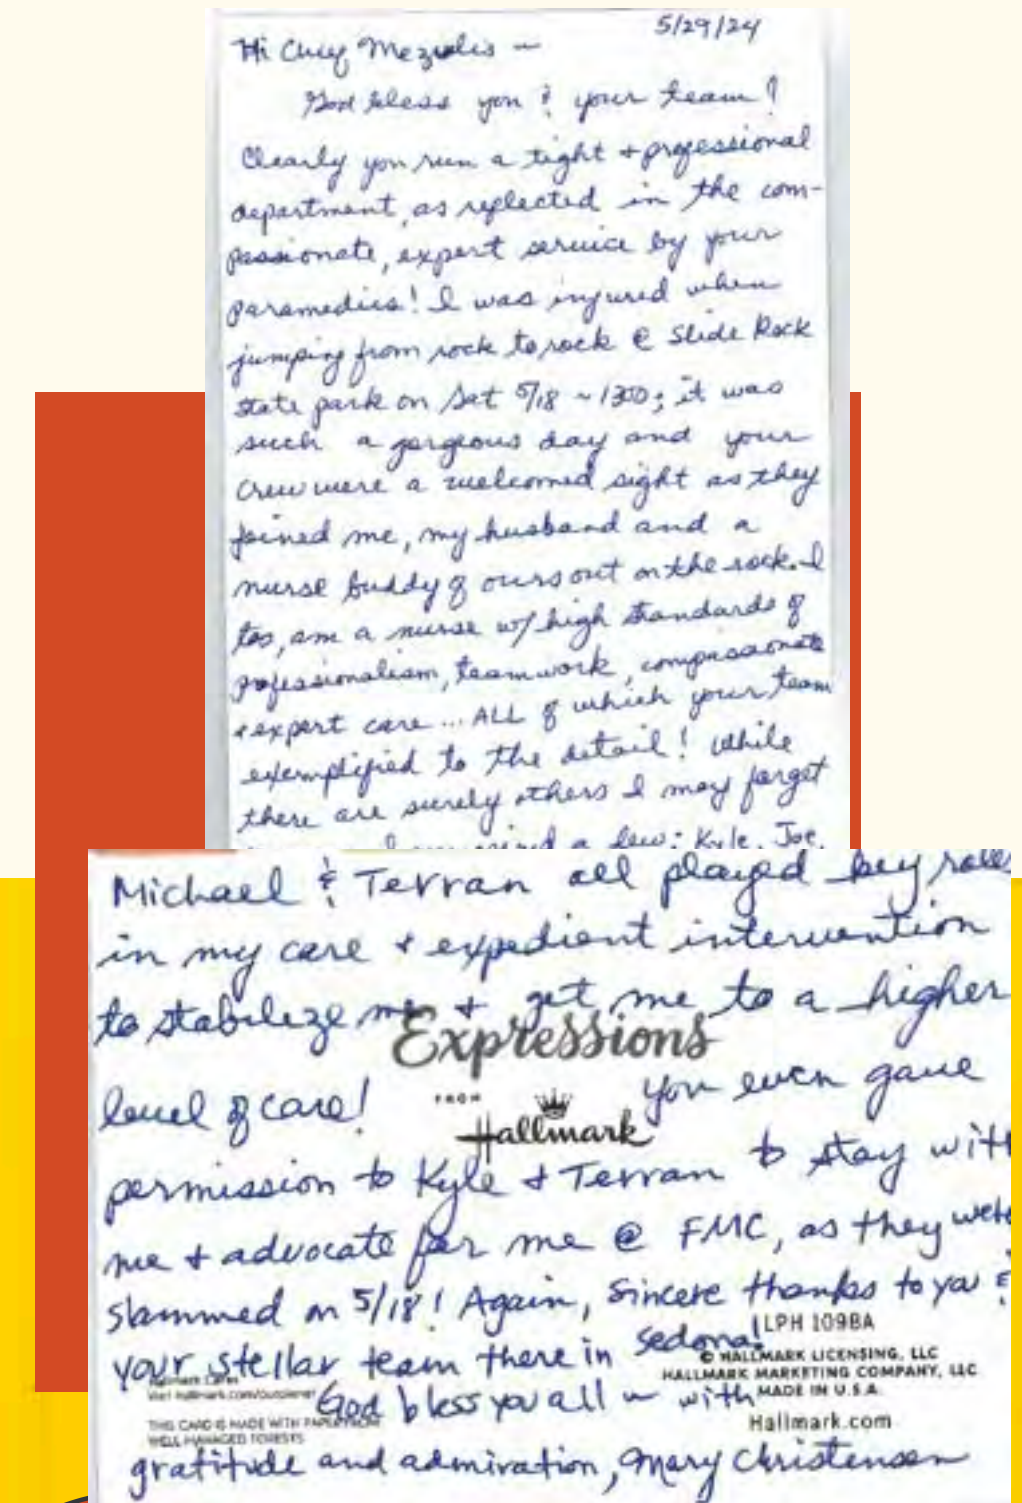 5/29/24
Hi Mezulis -
God bless you & your team!
Clearly you run a tight + professional
department, as reflected in the com-
passionate, expert service by your
paramedics! I was injured when
jumping from rock to rock @ Slide Rock
state park on Sat 5/18 ~ 1300; it was
such a gorgeous day and your
crew were a welcomed sight as they
joined me, my husband and a
nurse buddy of ours out on the rock. I
too, am a nurse w/ high standards of
professionalism, teamwork, compassionate
+ expert care ... ALL of which your team
exemplified to the detail! While
there are surely others I may forget
a few: Kyle, Joe,
Michael & Terran all played key roles
in my care + expedient intervention
to stabilize me + get me to a higher
Expressions
level of care! You even gave
FROM
Hallmark
permission to Kyle + Terran to stay with
me + advocate for me @ FMC, as they were
slammed on 5/18! Again, sincere thanks to you &
your stellar team there in Sedona!
LPH 109BA
© HALLMARK LICENSING, LLC
HALLMARK MARKETING COMPANY, LLC
MADE IN U.S.A.
Hallmark.com
God bless you all ~ with
THIS CARD IS MADE WITH PAPER FROM
WELL MANAGED FORESTS
gratitude and admiration, Mary Christensen